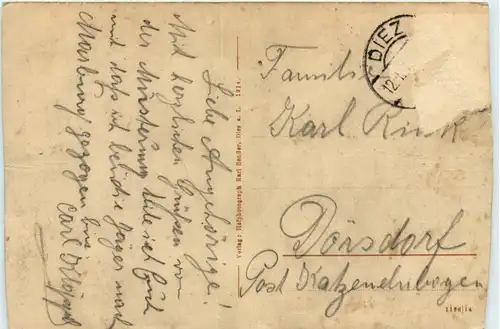 Liebe Angehörige!
Mit herzlichen Grüßen von
der Musterung teile ich Euch
mit daß ich bei die Jäger nach
Marburg gezogen bin
Carl
Verlag: Hofphotograph Karl Heußer, Diez a. L. 1914.
DIEZ
12.1.
Familie
Karl Rink
Dörsdorf
Post Katzenelnbogen